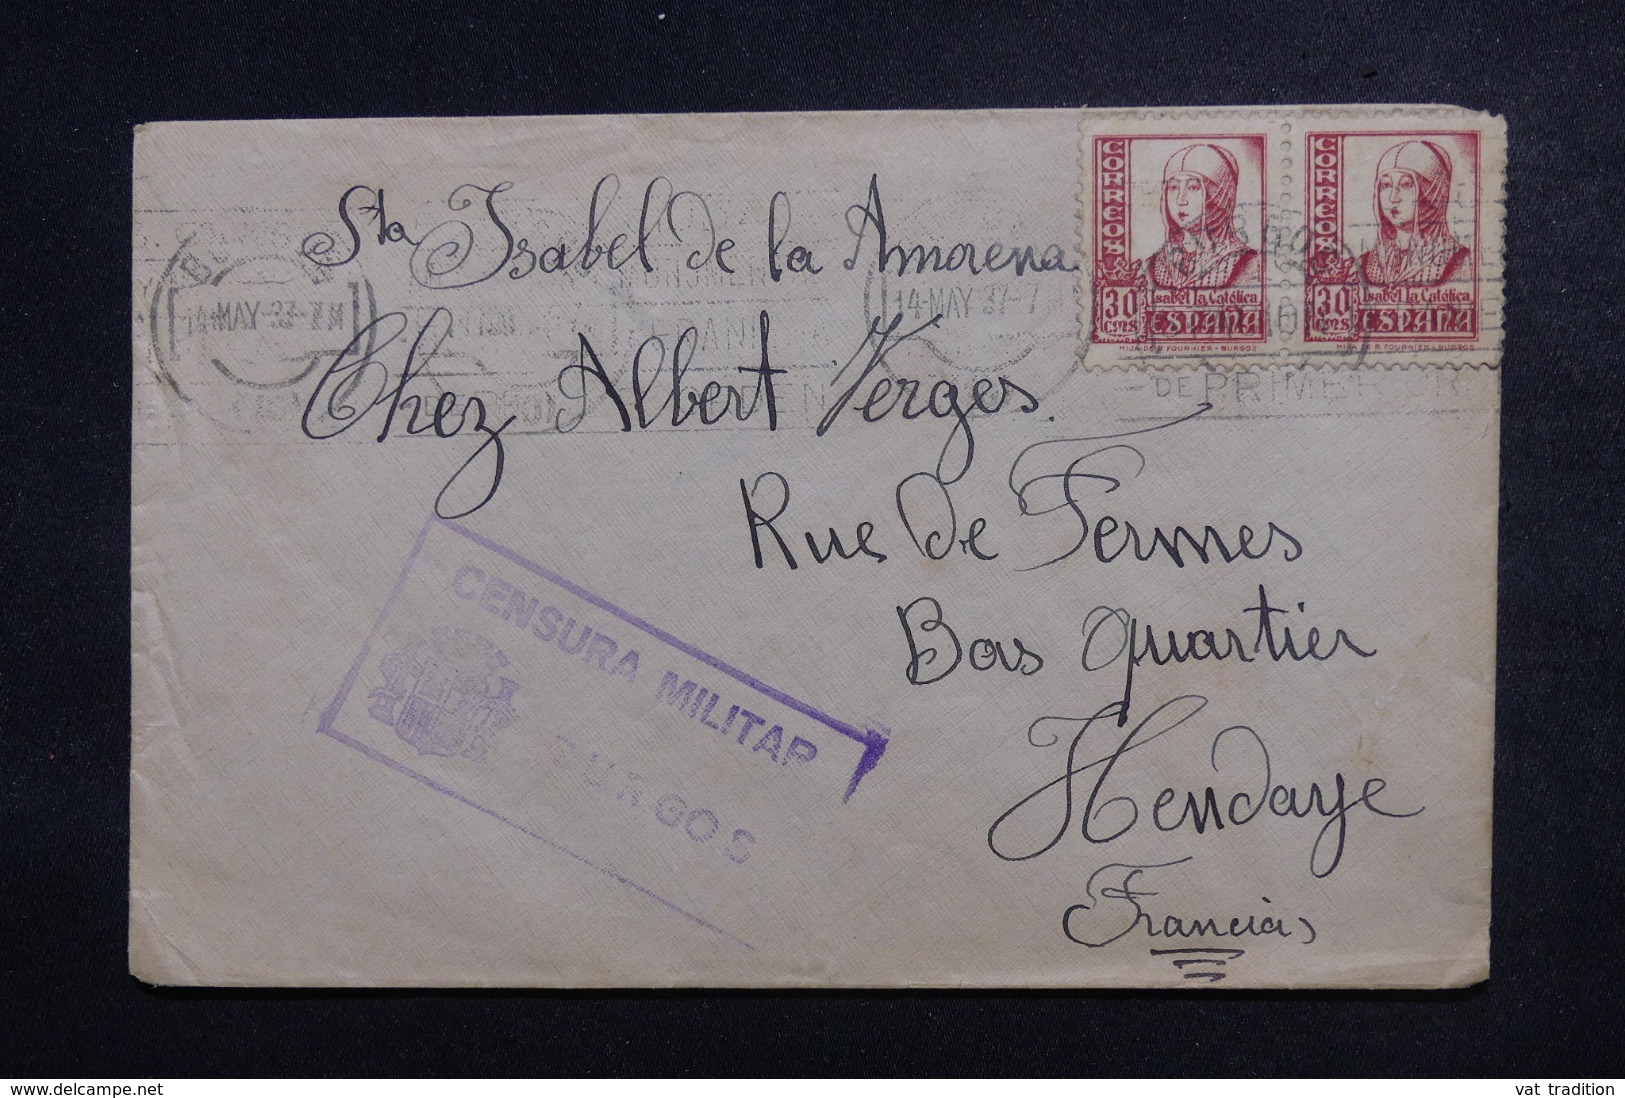 Sta Isabel de la Amorena
Chez Albert Verges.
Rue de Fermes
Bas Quartier
Hendaye
Francia
CORREOS
30 CMS
Isabel la Católica
ESPAÑA
HIJA DE B. FOURNIER-BURGOS
CORREOS
30 CMS
Isabel la Católica
ESPAÑA
HIJA DE B. FOURNIER-BURGOS
14-MAY-37-7
14-MAY 37-7
CENSURA MILITAR
BURGOS
www.delcampe.net
vat tradition